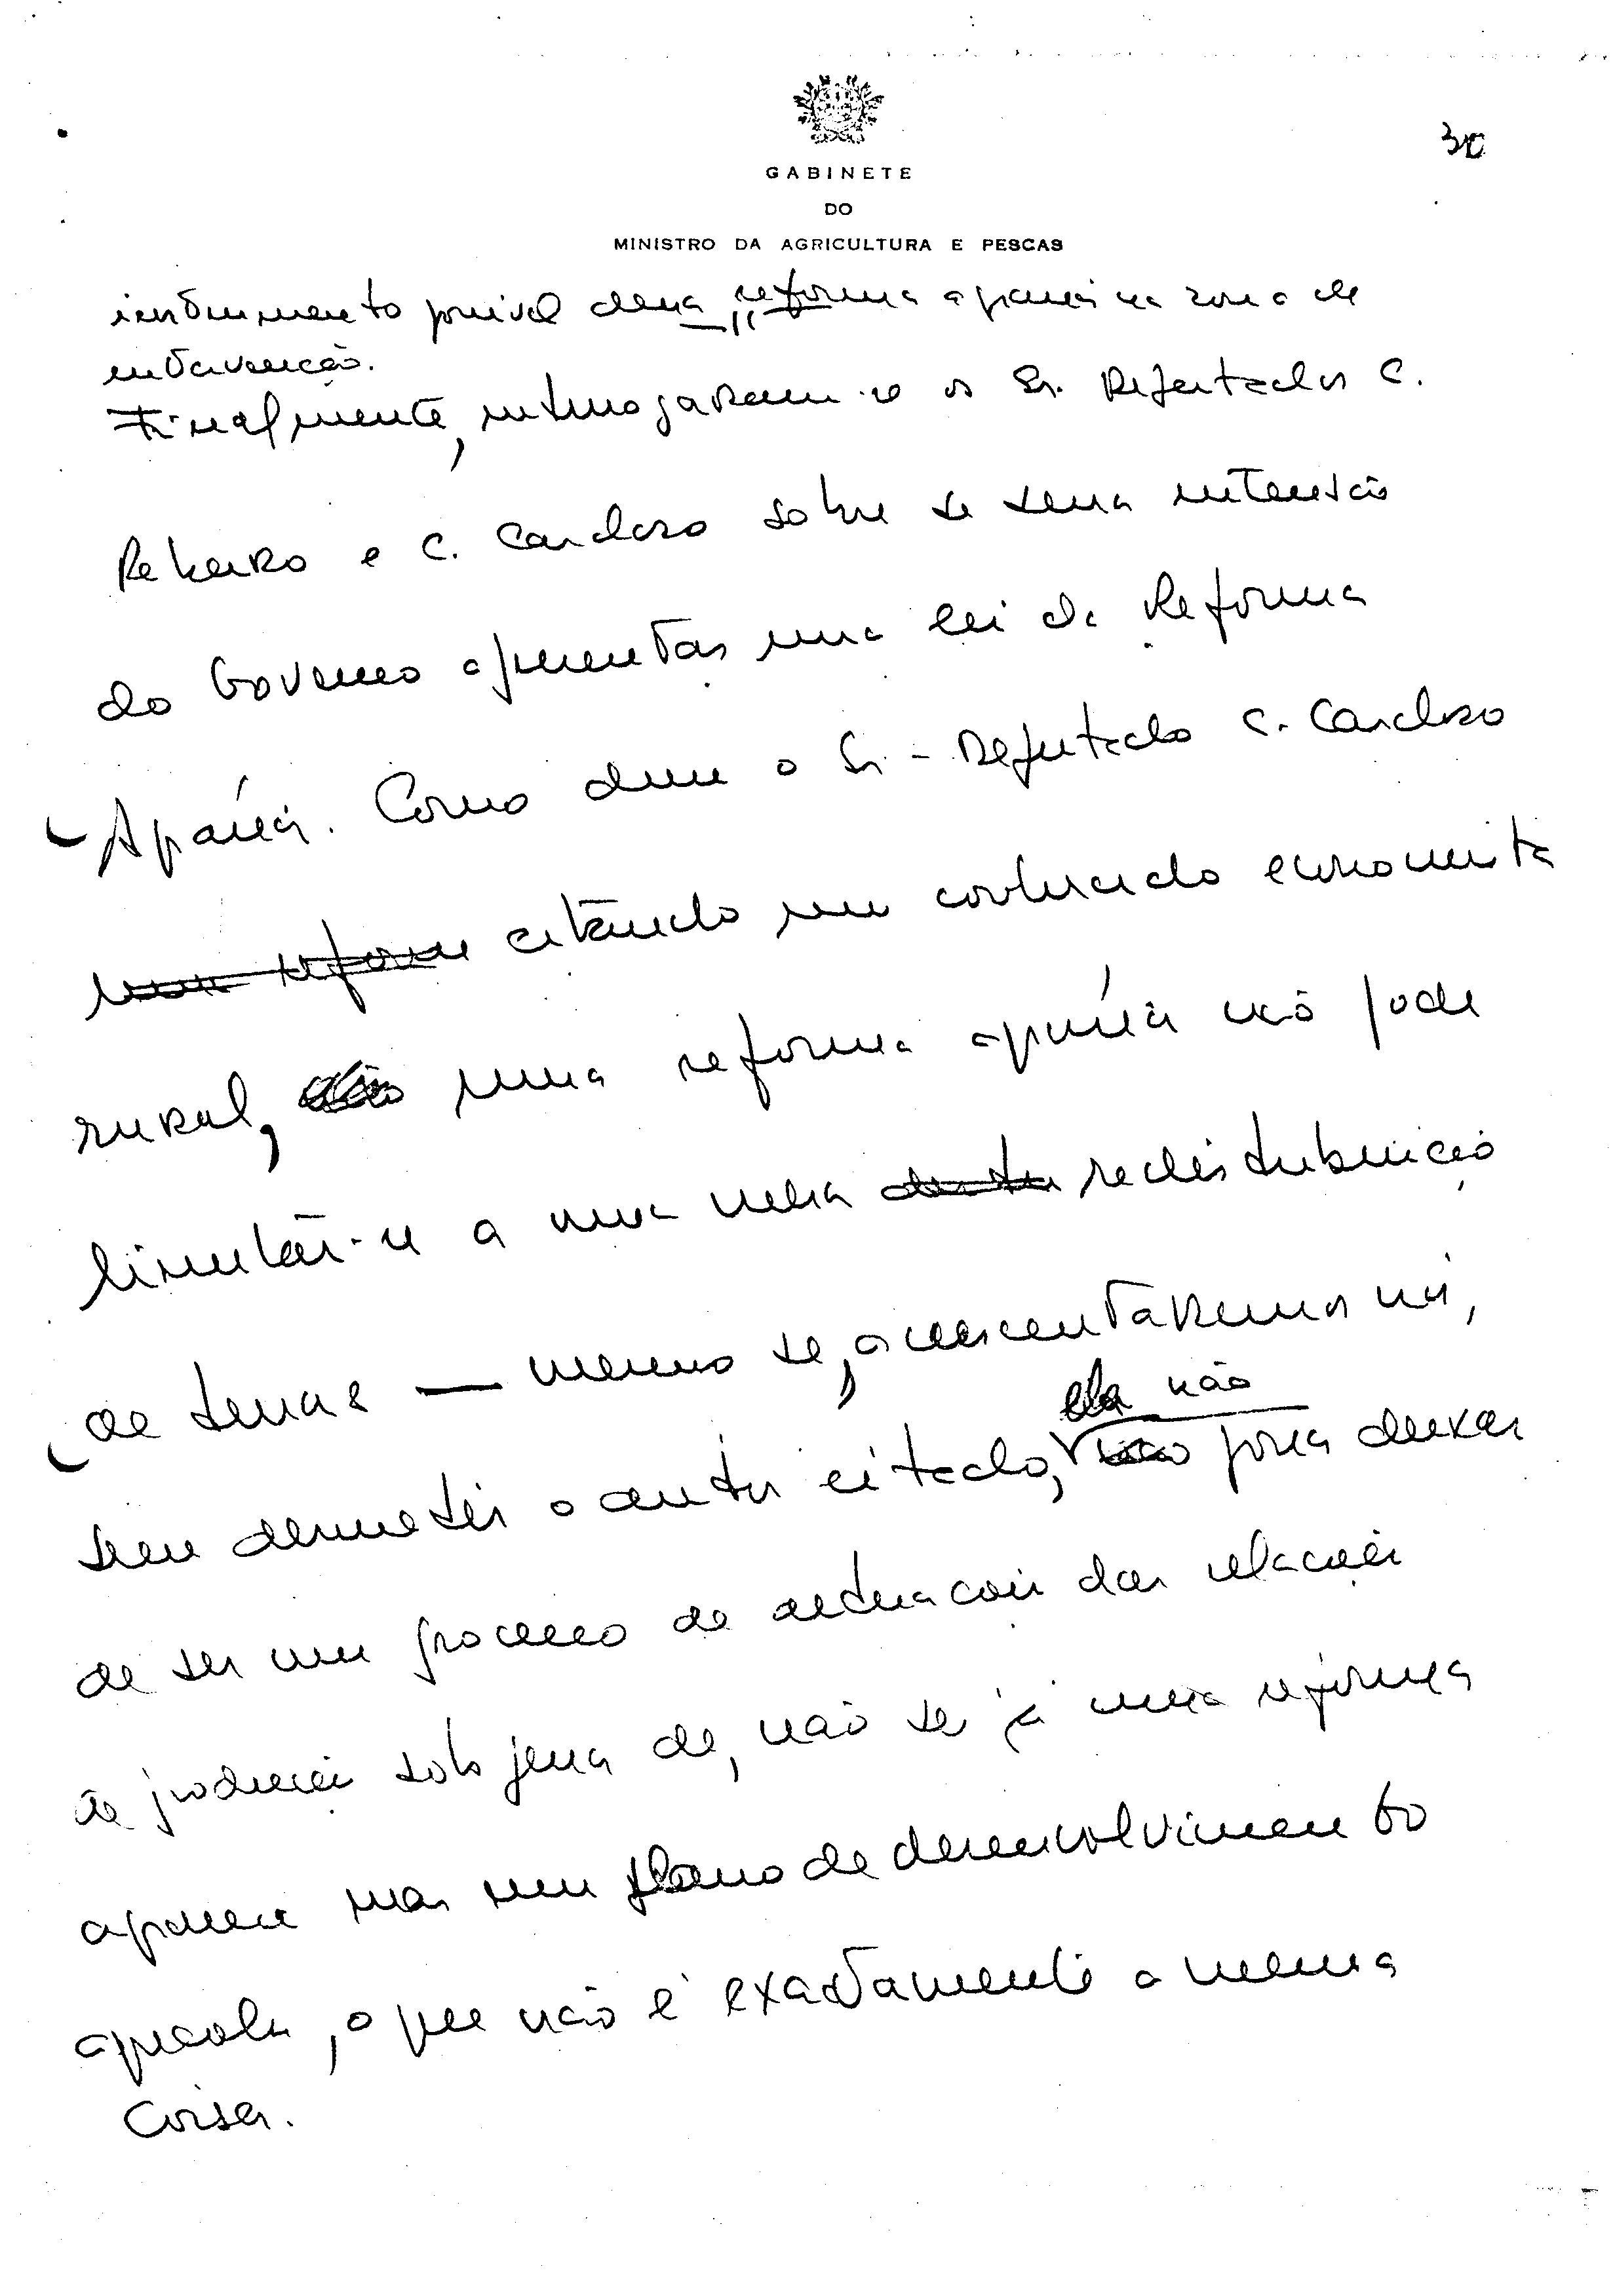 30
GABINETE
DO
MINISTRO DA AGRICULTURA E PESCAS
instrumento possível dessa reforma agrária na zona de
intervenção.
Finalmente, interrogaram-se os Srs. Deputados C.
e C. Cardoso sobre se seria intensão
do Governo apresentar uma lei de Reforma
Agrária. Como disse o Sr. Deputado C. Cardoso
uma reforma citando um conhecido economista
rural, uma reforma agrária não pode
limitar-se a uma mera redistribuição
de terras — mesmo se, acrescentaremos nós,
ela não
sem desmentir o autor citado, não possa deixar
de ser um processo de das relações
de produção sob pena de, não ser já uma reforma
agrária mas um plano de desenvolvimento
agrícola, o que não é exactamente a mesma
coisa.